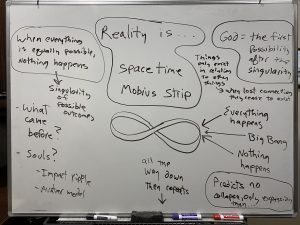 When everything
is equally possible,
nothing happens
Singularity
of
possible
outcomes
- What
came
before?
- Souls?
- Impact ripple
Reality is...
Spacetime
Mobius Strip
all the
way down
then repeats
God = the first
possibility
after the
singularity
Things
only exist
in relation
to other
things
when lost connection
they cease to exist
Everything
happens
Big Bang
Nothing
happens
Predicts no
collapse, only expansion